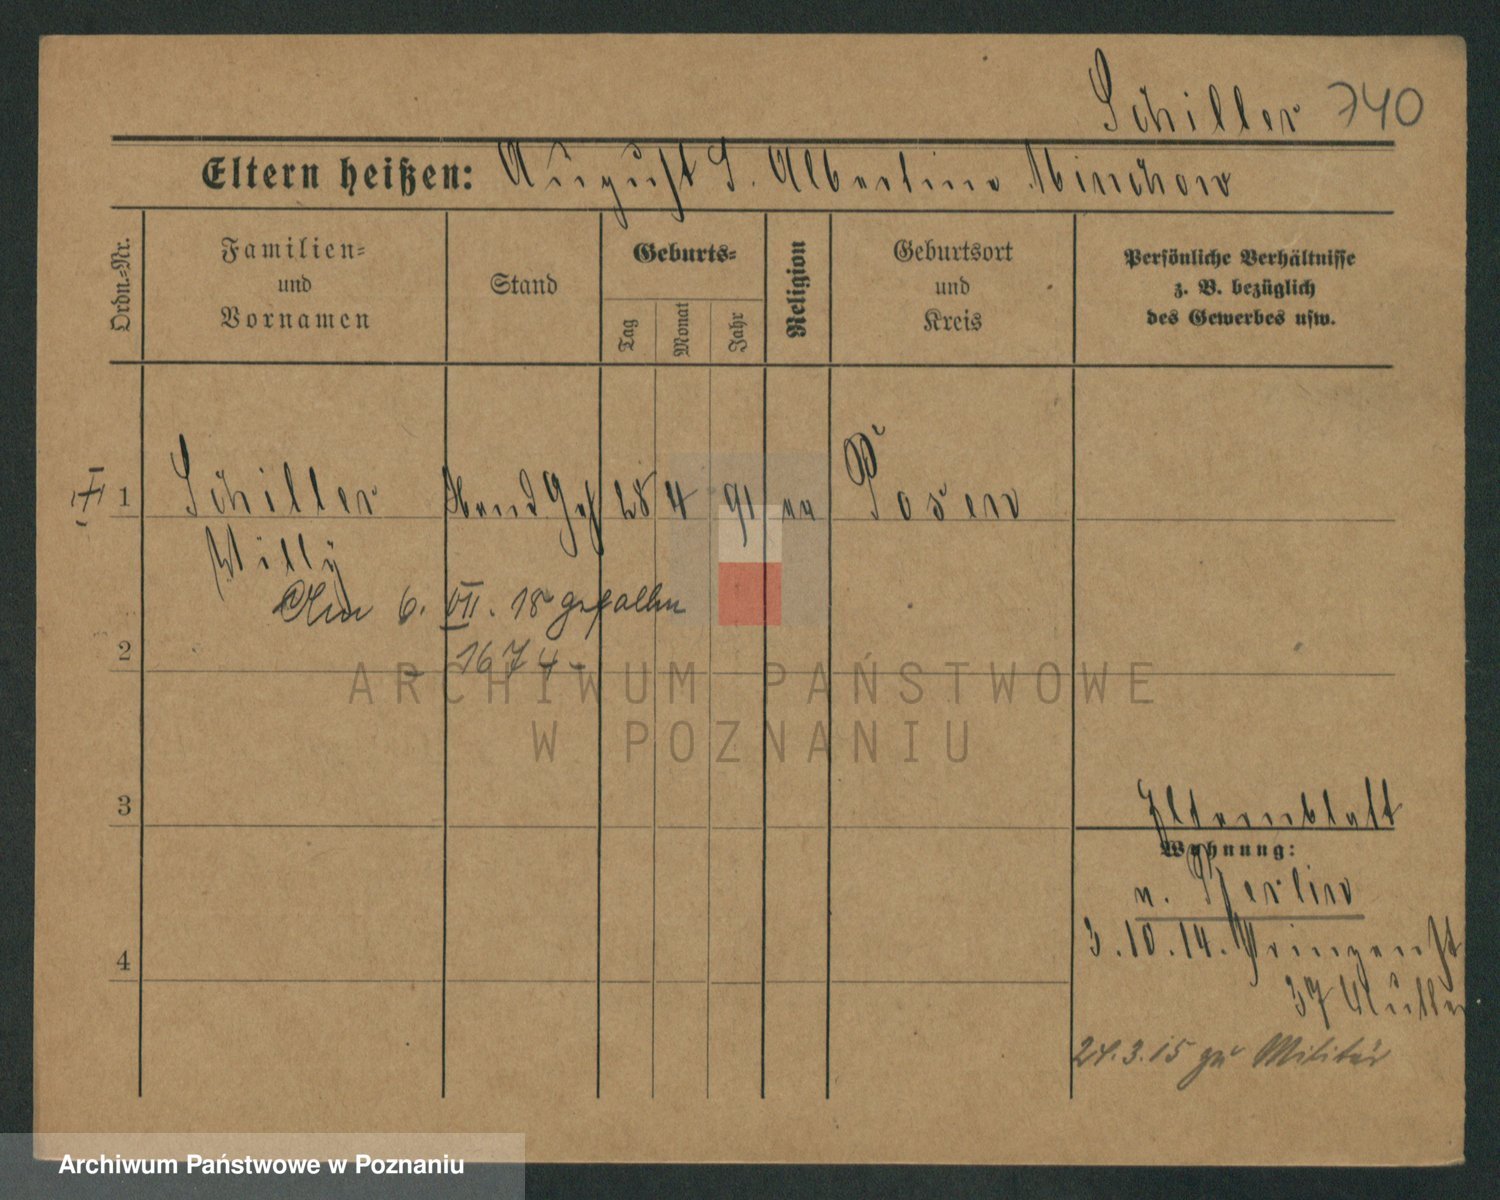 Schiller 740
Eltern heißen: August S. Albertine Minchow
Ordn.-Nr.
Familien-
und
Vornamen
Stand
Geburts-
Tag
Monat
Jahr
Religion
Geburtsort
und
Kreis
Persönliche Verhältnisse
z. B. bezüglich
des Gewerbes usw.
1 Schiller Hand Geh 28 4 91 ev Posen
Willy
Am 6. VII. 18 gefallen
1674
2
3
Elternblatt
Wohnung:
n. Berlin
4
3.10.14. Prinzenst
37 Mutter
24.3.15 zu Militär
ARCHIWUM PAŃSTWOWE
W POZNANIU
Archiwum Państwowe w Poznaniu